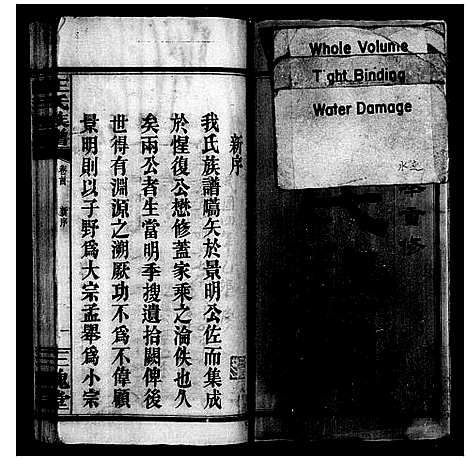 Whole Volume
Tight Binding
Water Damage
水迹
會修
新序
我氏族譜嚆矢於景明公佐而集成
於惺復公懋修蓋家乘之淪佚也久
矣兩公者生當明季搜遺拾闕俾後
世得有淵源之溯厥功不爲不偉顧
景明則以子野爲大宗孟舉爲小宗
王氏族譜
卷首
新序
一
三槐堂